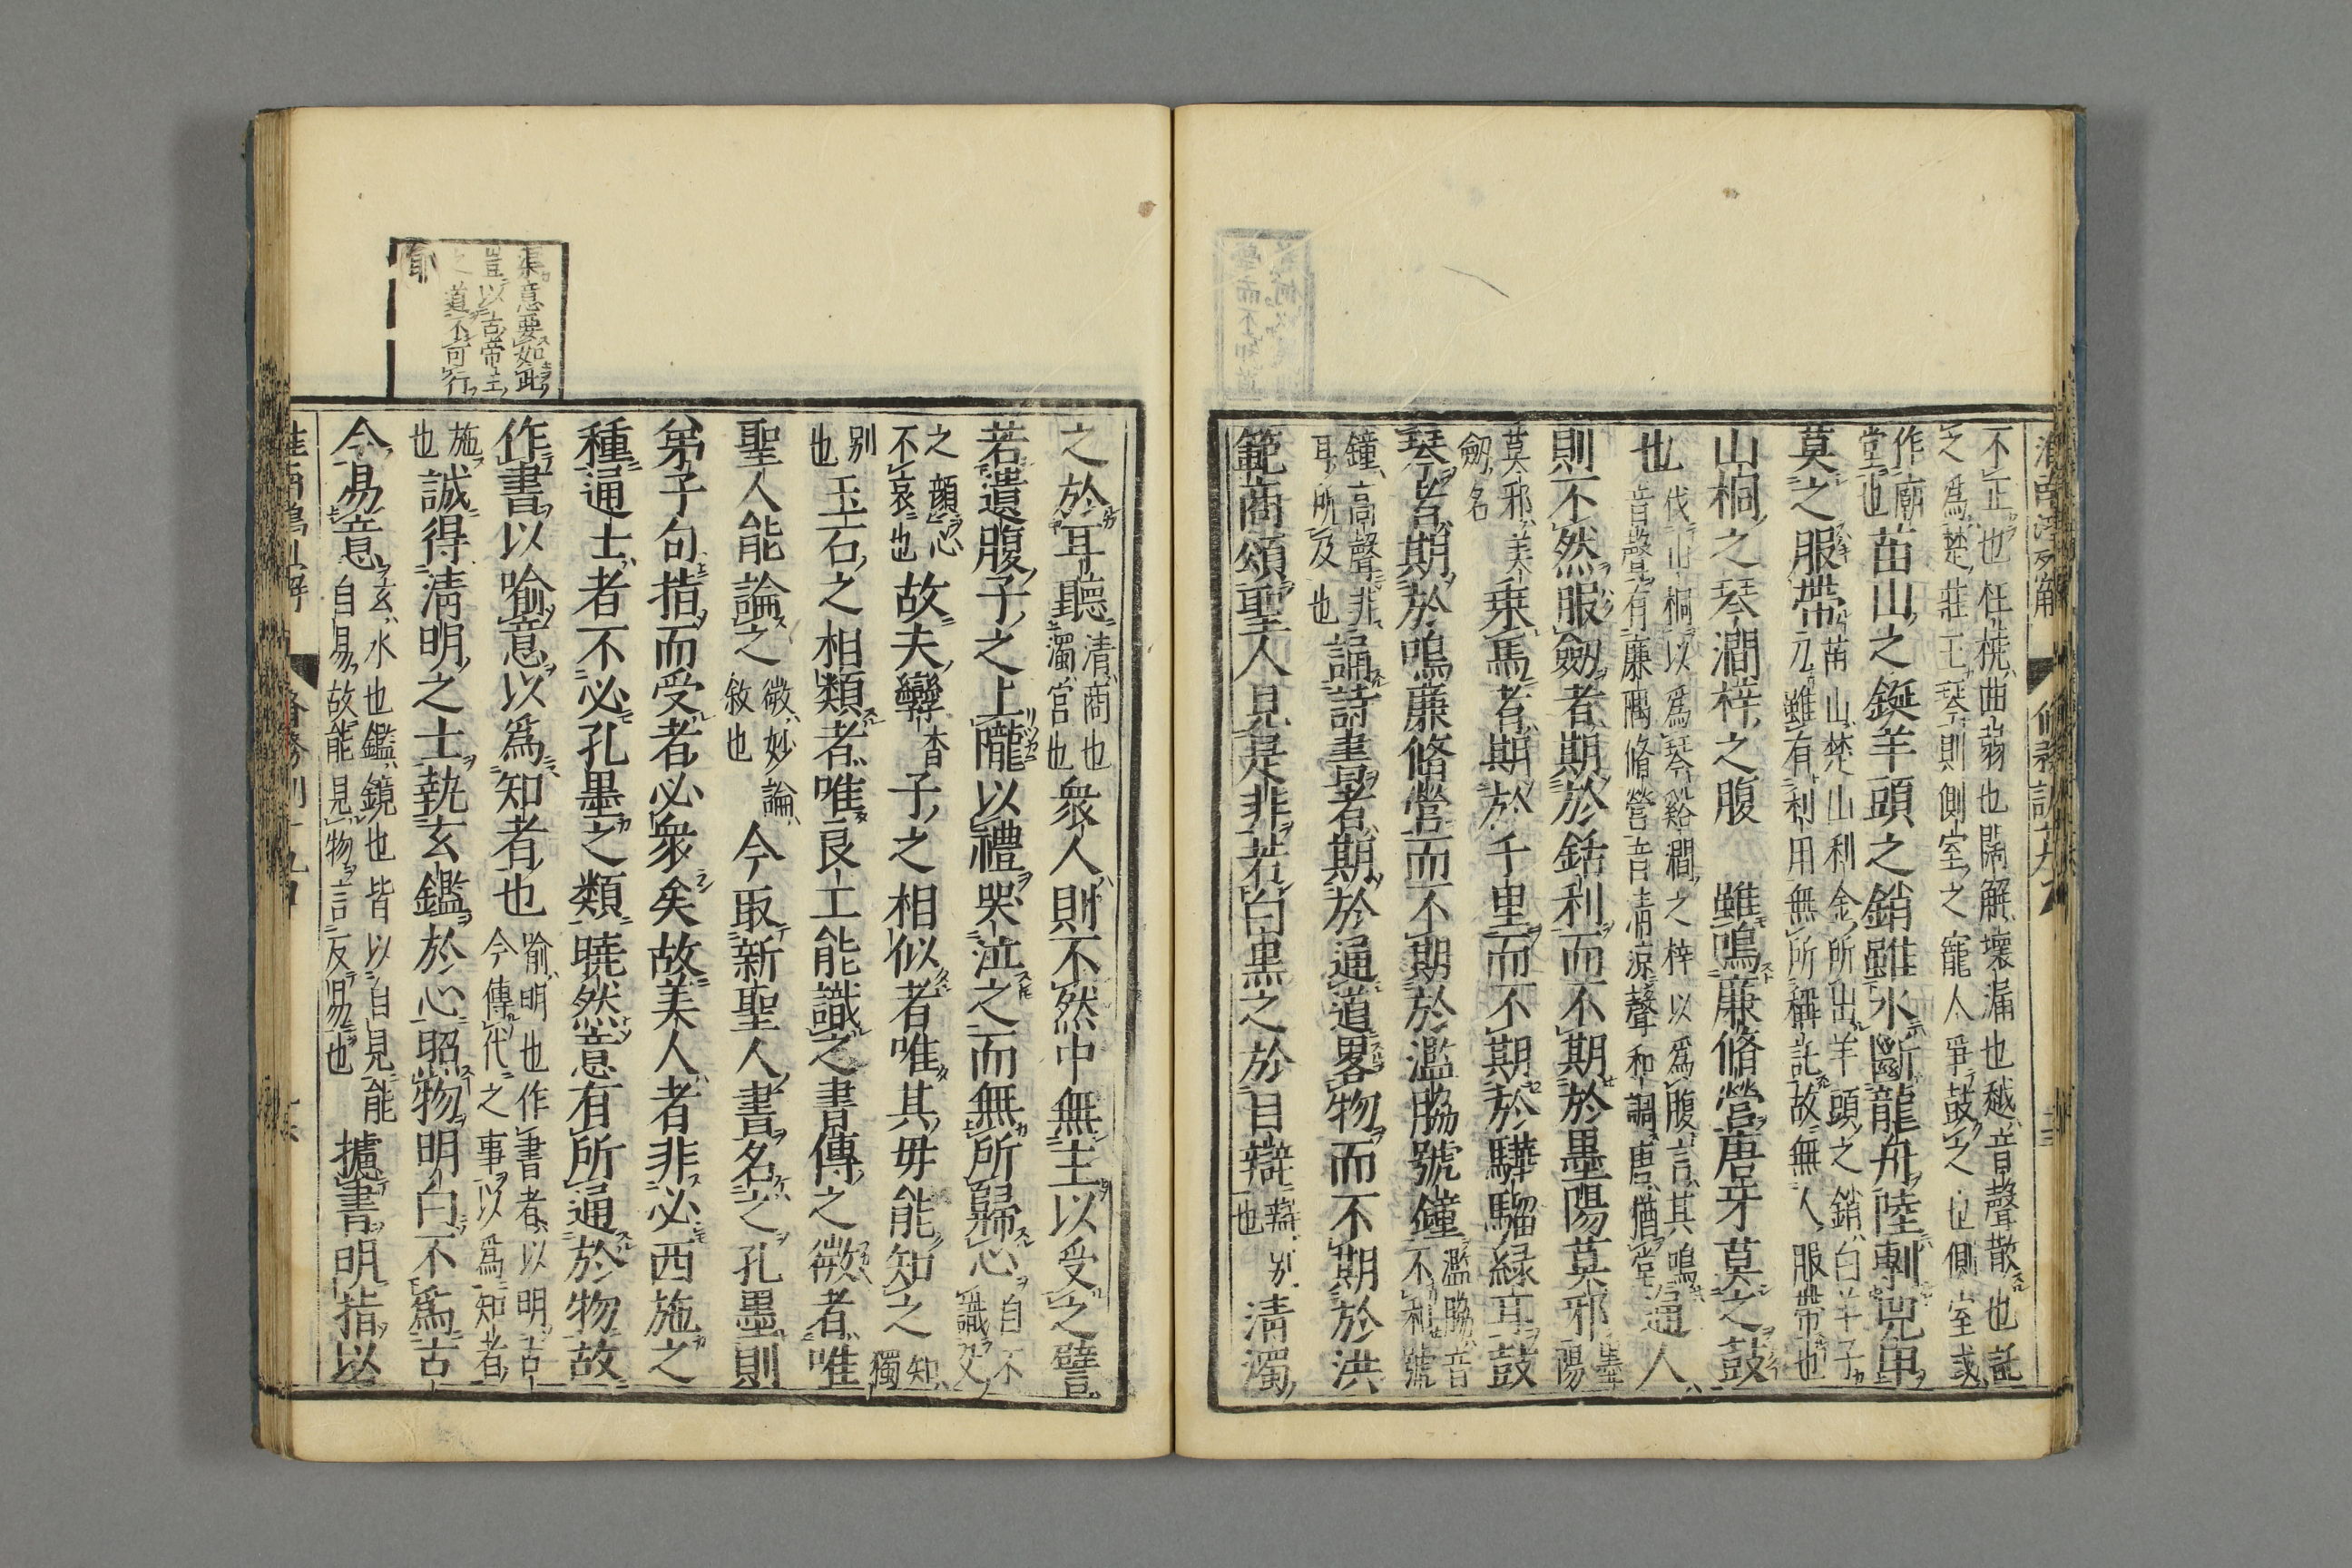 淮南鴻烈解 脩務訓
不正也枉橈曲弱也闊解壞漏也越音聲散也託
之爲楚莊王琴則側室之寵人爭鼓之也側室或
作廟堂也苗山之鋋羊頭之銷雖水斷龍舟陸剸兕甲
莫之服帶苗山楚山利金所出羊頭之銷白羊子刀雖有利用無所稱託故無人服帶也
山桐之琴澗梓之腹雖鳴廉脩營唐牙莫之鼓
也伐山桐以爲琴谿澗之梓以爲腹言其鳴音聲有廉隅脩營音清涼聲和調唐猶堂通人
則不然服劒者期於銛利而不期於墨陽莫邪墨陽
莫邪美劒名乗馬者期於千里而不期於驊騮緑耳鼓
琴者期於鳴廉脩營而不期於濫脇號鐘濫脇音不和號
鐘高聲非耳所及也誦詩書者期於通道畧物而不期於洪
範商頌聖人見是非若白黒之於目辯辯別也清濁
之於耳聽清商也濁宮也衆人則不然中無主以受之譬
若遺腹子之上隴以禮哭泣之而無所歸心自不識父
之顔心不哀也故夫孿子之相似者唯其毋能知之知獨
別也玉石之相類者唯良工能識之書傳之微者唯
聖人能論之微妙論敘也今取新聖人書名之孔墨則
弟子句指而受者必衆矣故美人者非必西施之
種通士者不必孔墨之類曉然意有所通於物故
作書以喻意以爲知者也喻明也作書者以明古今傳代之事以爲知者
施也誠得淸明之士執玄鑑於心照物明白不爲古
今易意玄水也鑑鏡也皆以自見能自易故能見物言反易也攄書明指以
意要如此
豈以古帝王
之道不可行
耶